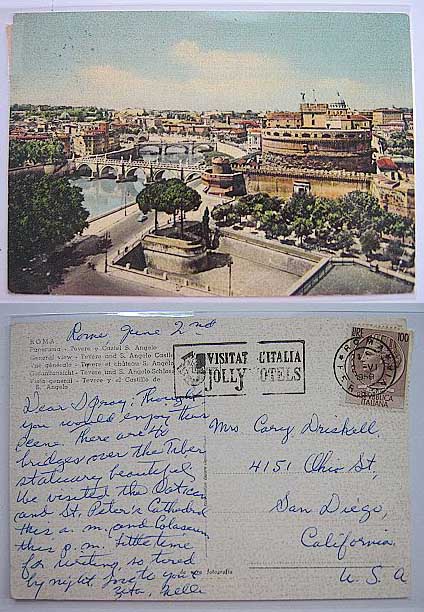 Rome June 2nd
ROMA
Panorama - Tevere e Castel S. Angelo
General view - Tevere and S. Angelo Castle
Vue générale - Tevere et château S. Angelo
Gesamtansicht - Tevere und S. Angelo-Schloss
Vista general - Tevere y el Castillo de
S. Angelo
VISITATE L'ITALIA
JOLLY HOTELS
ROMA
LIRE 100
REPVBBLICA
ITALIANA
Dear Thought
you would enjoy this
scene. There are 40
bridges over the Tiber
statuary beautiful
We visited the Vatican
and St. Peter's Cathedral
this a.m. and Colaseum
this p.m. Little time
for writing, so tired
by night.
Mrs Cary Driskell,
4151 Ohio St,
San Diego,
California
U.S.A
vera fotografia